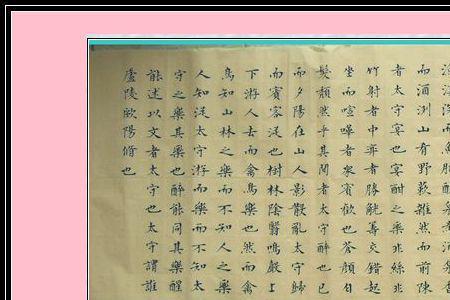 而酒洌山有野蔌雜然而前陳
者太守宴也宴酣之樂非絲非
竹射者中弈者勝觥籌交錯起
坐而喧嘩者衆賓歡也蒼顏白
髮頹然乎其間者太守醉也已
而夕陽在山人影散亂太守歸
而賓客從也樹林陰翳鳴聲上
下游人去而禽鳥樂也然而禽
鳥知山林之樂而不知人之樂
人知從太守游而樂而不知太
守之樂其樂也醉能同其樂醒
能述以文者太守也太守謂誰
廬陵歐陽脩也